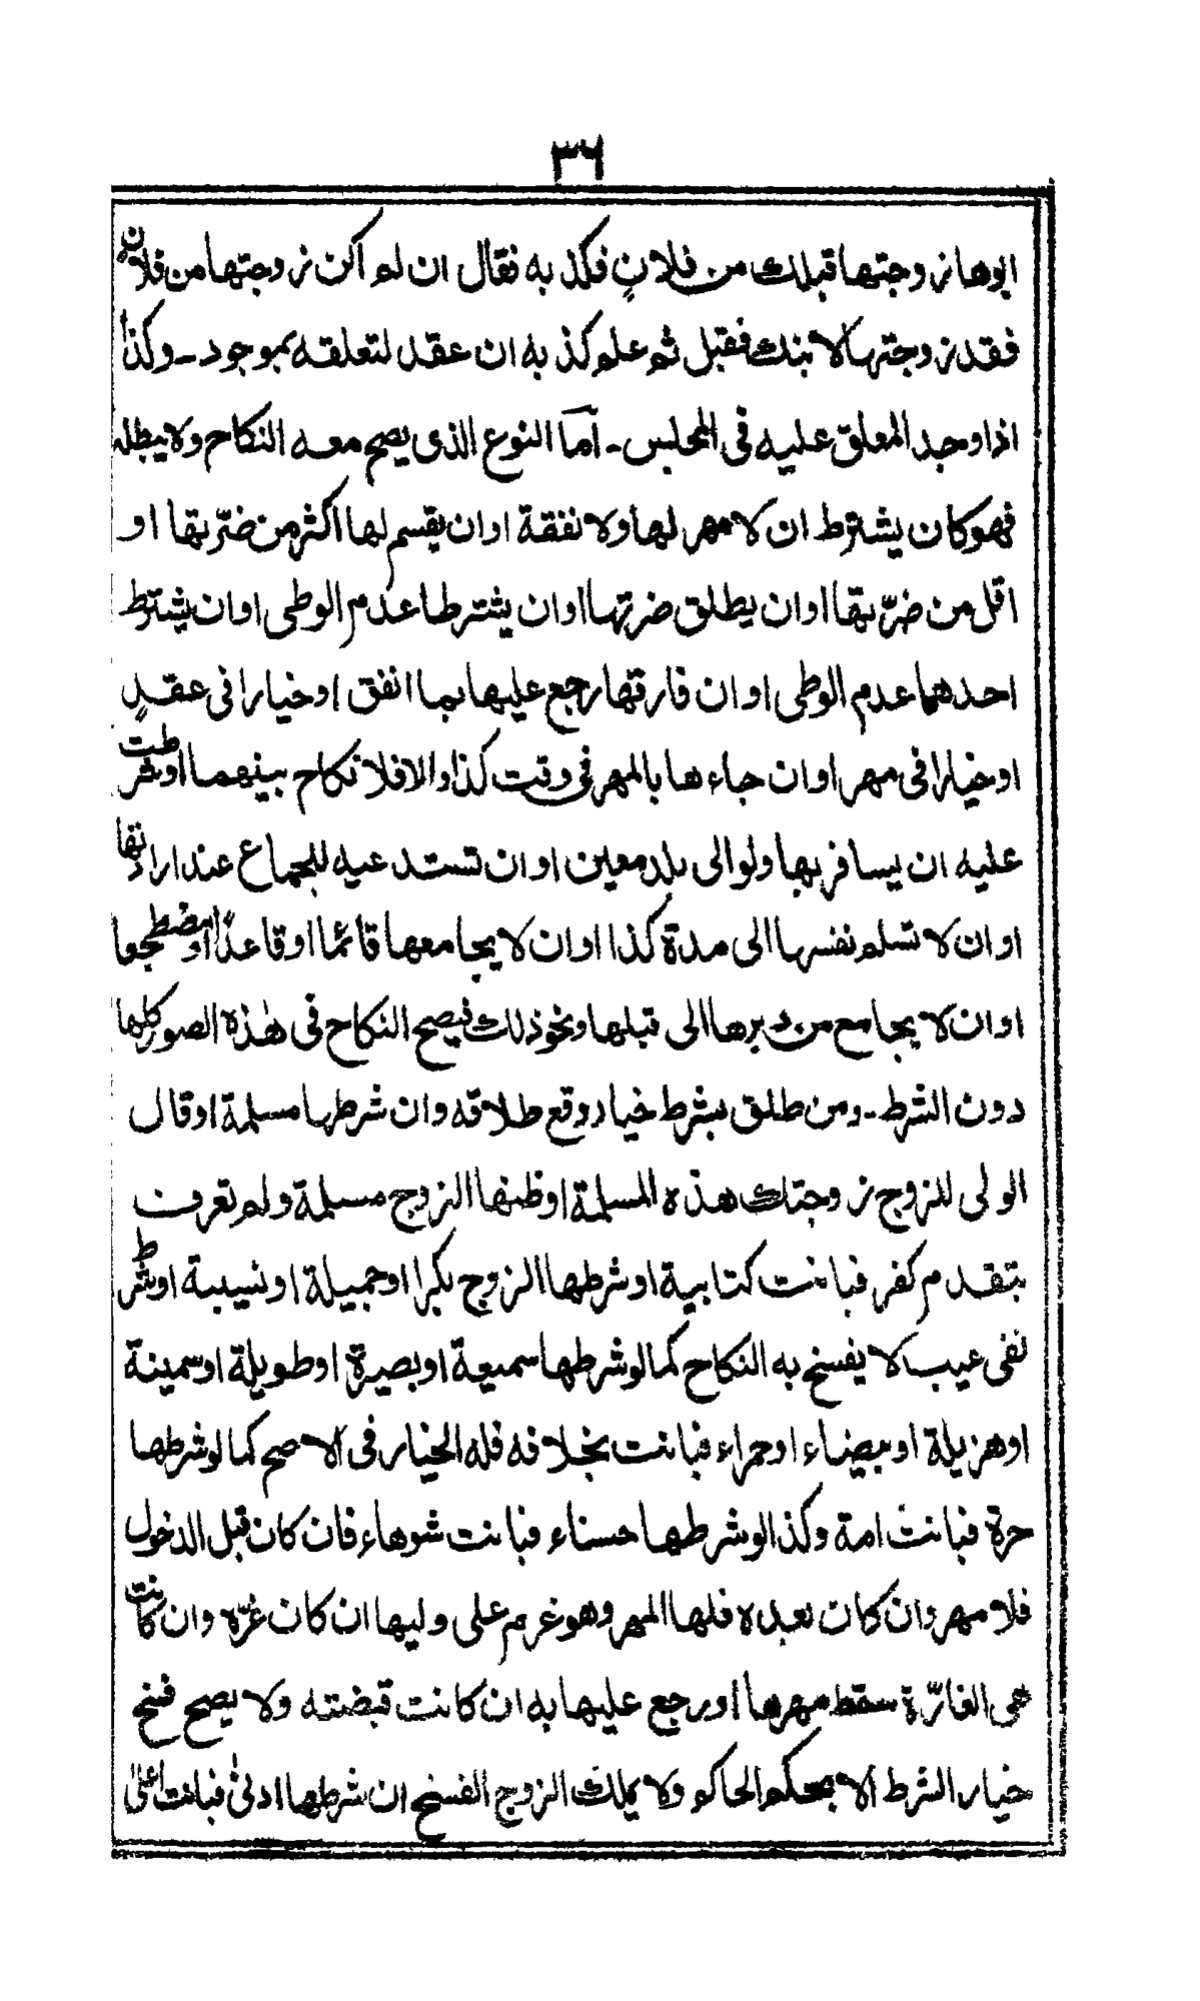 ٣٦
ابوها زوجتها قبلك من فلانٍ فكذبه فقال ان لم اكن زوجتها من فلانٍ
فقد زوجتها لابنك فقبل ثم علم كذبه ان عقد لتعلقه بموجود ـ وكذا
اذا وجد المعلق عليه فى المجلس ـ اما النوع الذى يصح معه النكاح ولا يبطله
فهو كان يشترط ان لا مهر لها ولا نفقة او ان يقسم لها اكثر من ضرّتها او
اقل من ضرّتها او ان يطلق ضرتها او ان يشترطا عدم الوطى او ان يشترط
احدهما عدم الوطى او ان فارقها رجع عليها بما انفق او خيارا فى عقدٍ
او خيارا فى مهر او ان جاءها بالمهر فى وقت كذا والا فلا نكاح بينهما او شرطت
عليه ان يسافر بها ولو الى بلد معين او ان تستدعيه للجماع عند ارادتها
او ان لا تسلم نفسها الى مدة كذا او ان لا يجامعها قائما او قاعدًا او مضطجعا
او ان لا يجامع من دبرها الى قبلها ونحو ذلك فيصح النكاح فى هٰذه الصور كلها
دون الشرط ـ ومن طلق بشرط خيار وقع طلاقه وان شرطها مسلمة او قال
الولى للزوج زوجتك هذه المسلمة او ظنها الزوج مسلمة ولم تعرف
بتقدم كفر فبانت كتابية او شرطها الزوج بكرا او جميلة او نسيبة او شرط
نفى عيب لا يفسخ به النكاح كما لو شرطها سميعة او بصيرة او طويلة او سمينة
او هزيلة او بيضاء او حمراء فبانت بخلافه فله الخيار فى الاصح كما لو شرطها
حرة فبانت امة وكذا لو شرطها حسناء فبانت شوهاء فان كان قبل الدخول
فلا مهر وان كان بعده فلها المهر وهو غرم على وليها ان كان غرّه وان كانت
هى الغارّة سقط مهرها او رجع عليها به ان كانت قبضته ولا يصح فسخ
خيار الشرط الا بحكم الحاكم ولا يملك الزوج الفسخ ان شرطها ادنىٰ فبانت اعلىٰ